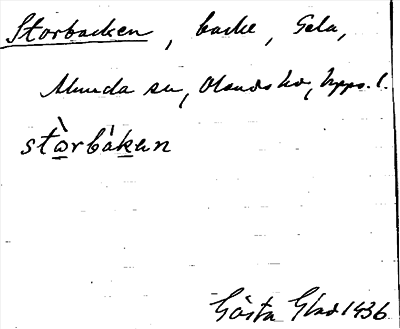 Storbacken, backe, Gela,
Almunda sn, Olands hd, Upps. l.
stòrbákan
Gösta Glad 1936